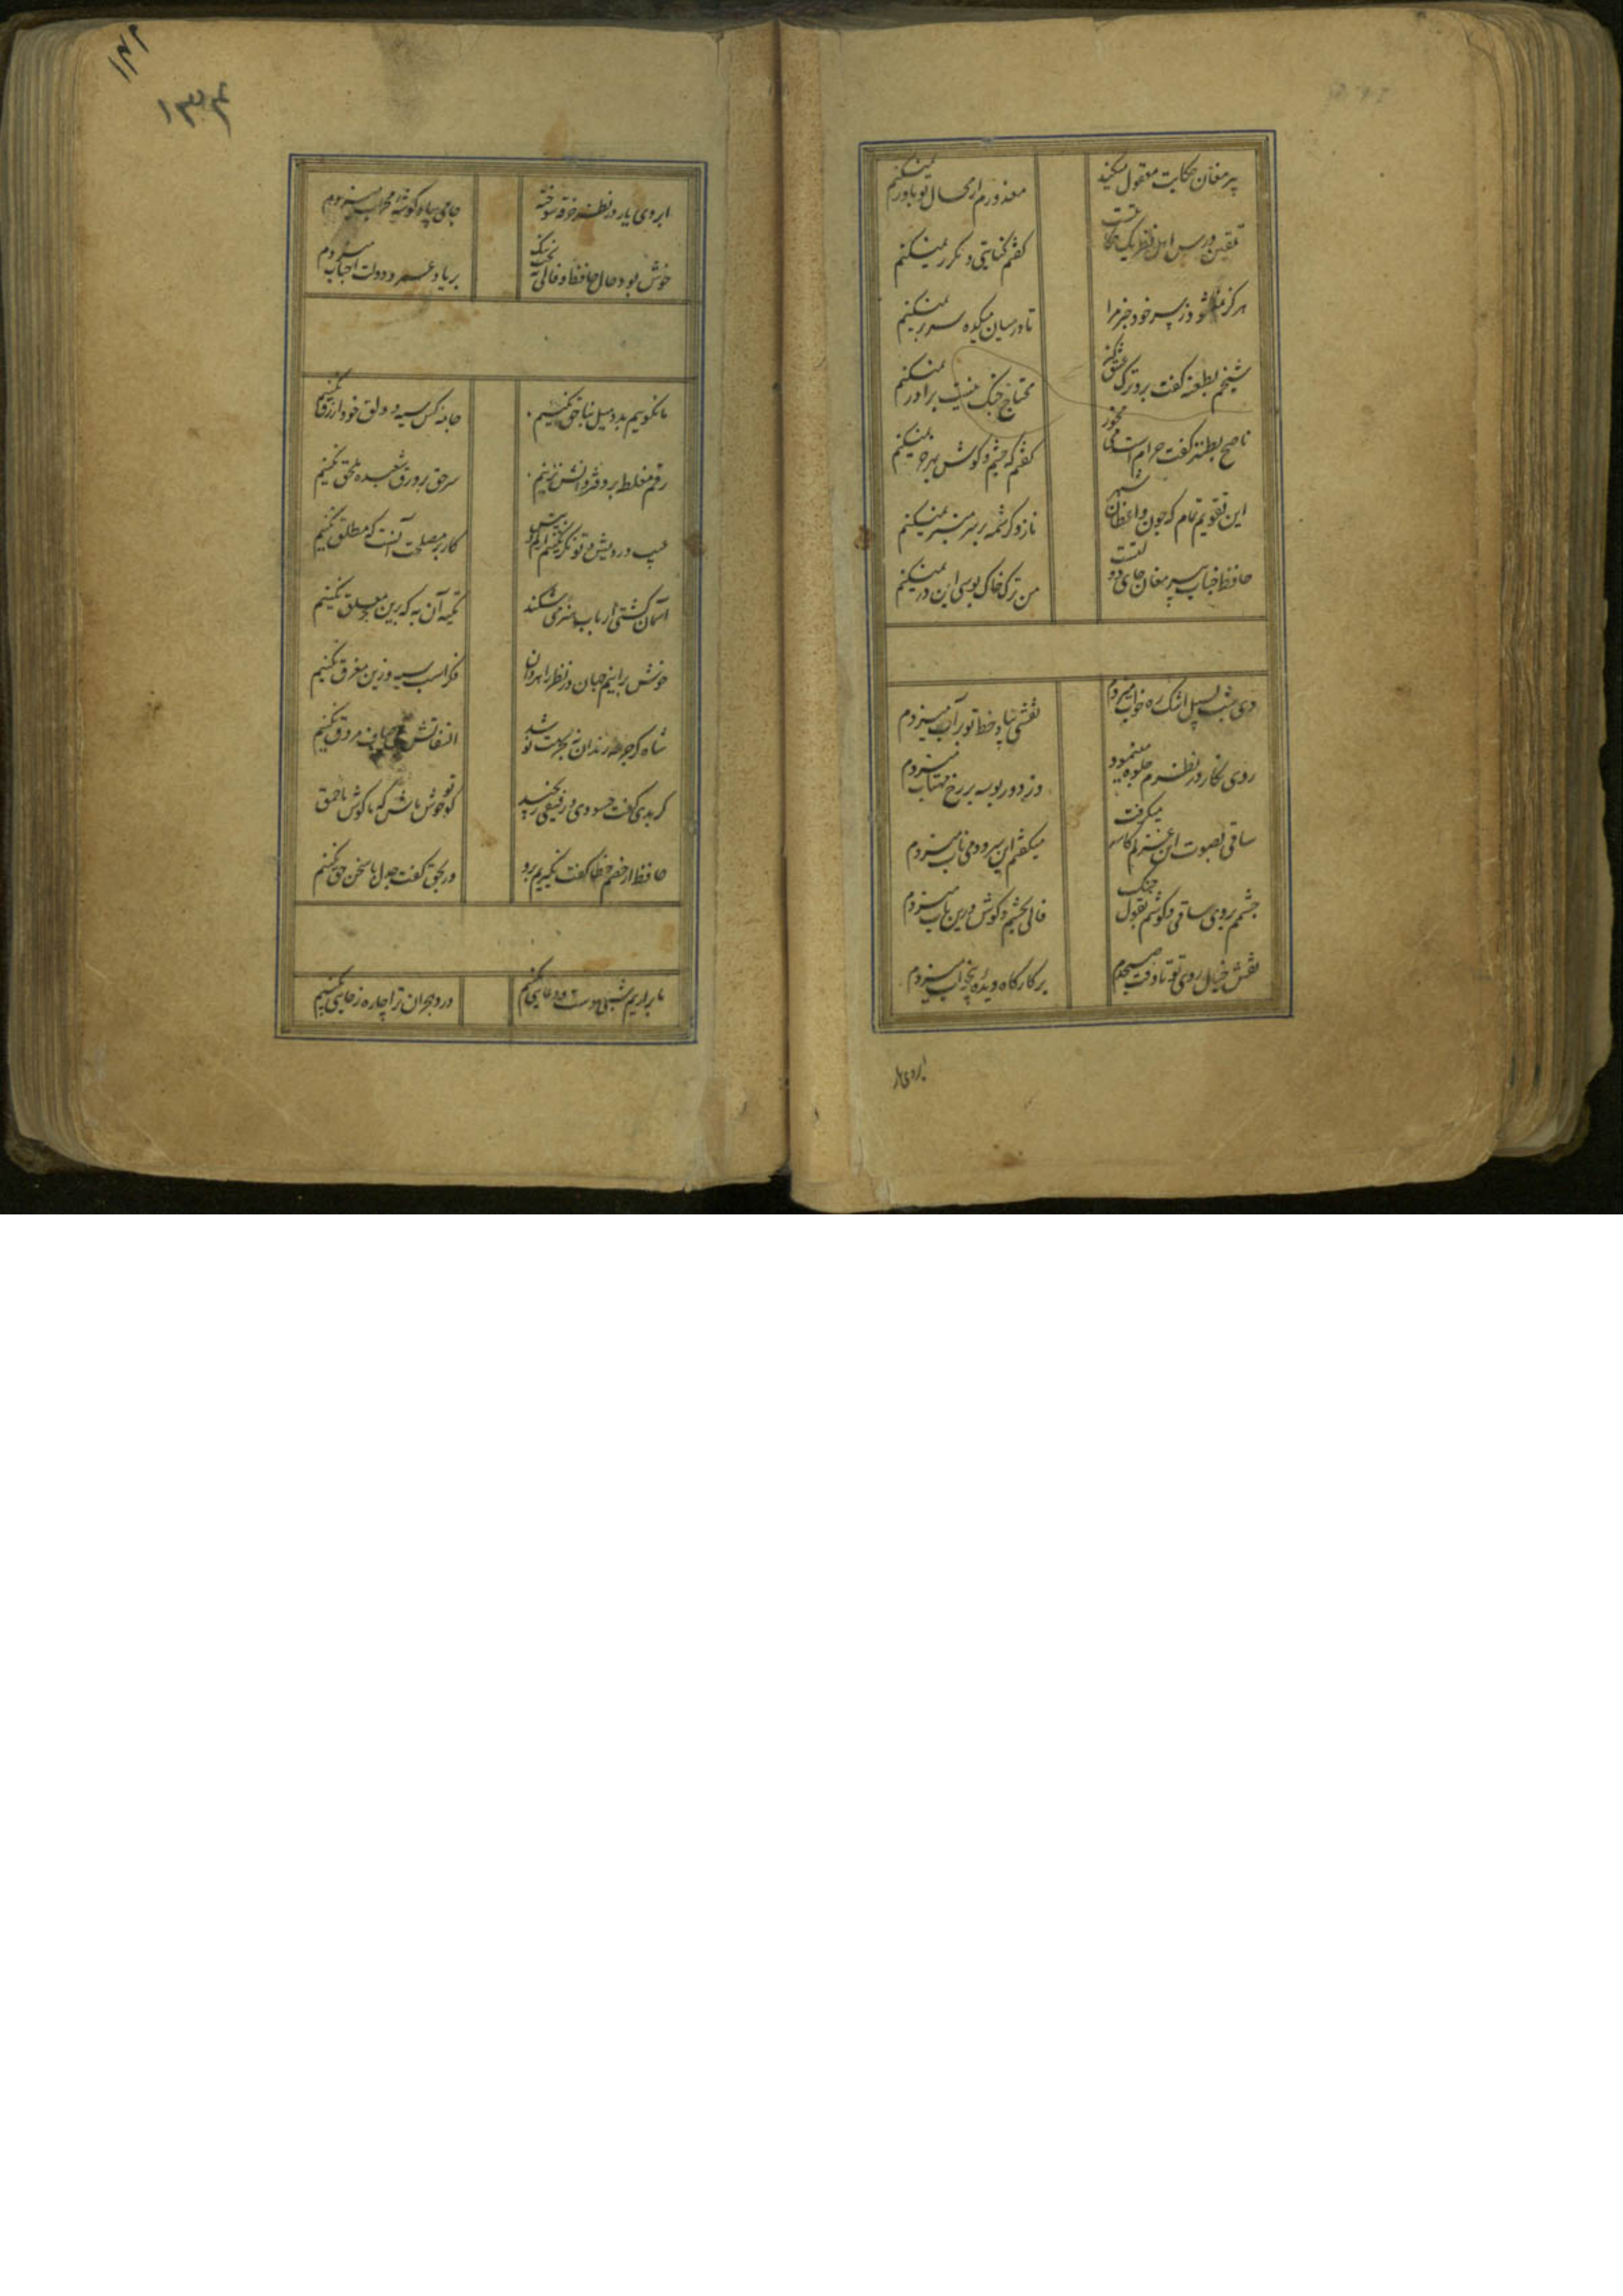 پیر مغان حکایت معقول میکند
معذورم از محال تو باور نمیکنم
تلقین درس اهل نظر یک اشارتست
گفتم کنایتی و مکرر نمیکنم
هرگز نمیشود ز سر خود خبر مرا
تا در میان میکده سر بر نمیکنم
شیخم بطعنه گفت برو ترک عشق کن
محتاج جنگ نیست برادر نمیکنم
ناصح بطنز گفت حرام است می مخور
گفتم که چشم و گوش بهر خر نمیکنم
این تقویم تمام که چون واعظان شهر
ناز و کرشمه بر سر منبر نمیکنم
حافظ جناب پیر مغان جای دولتست
من ترک خاک بوسی این در نمیکنم
دی شب بسیل اشک ره خواب میزدم
نقشی بیاد خط تو بر آب میزدم
روی نگار در نظرم جلوه مینمود
وز دور بوسه بر رخ مهتاب میزدم
ساقی بصوت این غزلم کاسه میگرفت
میگفتم این سرود و می ناب میزدم
چشمم بروی ساقی و گوشم بقول چنگ
فالی بچشم و گوش درین باب میزدم
نقش خیال روی تو تا وقت صبحدم
بر کارگاه دیده بیخواب میزدم
ابروی یار
۱۴۲
۱۳۴
ابروی یار در نظر و خرقه سوخته
جامی بیاد گوشه محراب میزدم
خوش بود حال حافظ و فالی به بخت نیک
بر یاد عمر و دولت احباب میزدم
ما نگوییم بد و میل بناحق نکنیم
جامه کس سیه و دلق خود ازرق نکنیم
رقم مغلطه بر دفتر دانش نزنیم
سر حق بر ورق شعبده ملحق نکنیم
عیب درویش و توانگر بکم و بیش
کار بد مصلحت آنست که مطلق نکنیم
آسمان کشتی ارباب هنر میشکند
تکیه آن به که برین بحر معلق نکنیم
خوش برانیم جهان در نظر راهروان
فکر اسب سیه و زین مغرق نکنیم
شاه اگر جرعه رندان نه بحرمت نوشد
التفاتش بمی صاف مروق نکنیم
گر بدی گفت حسودی و رفیقی رنجید
گو تو خوش باش که ما گوش باحمق
حافظ ار خصم خطا گفت نگیریم برو
ور بحق گفت جدل با سخن حق نکنیم
ما برآریم شبی دست و دعایی بکنیم
درد هجران ترا چاره ز جایی بکنیم